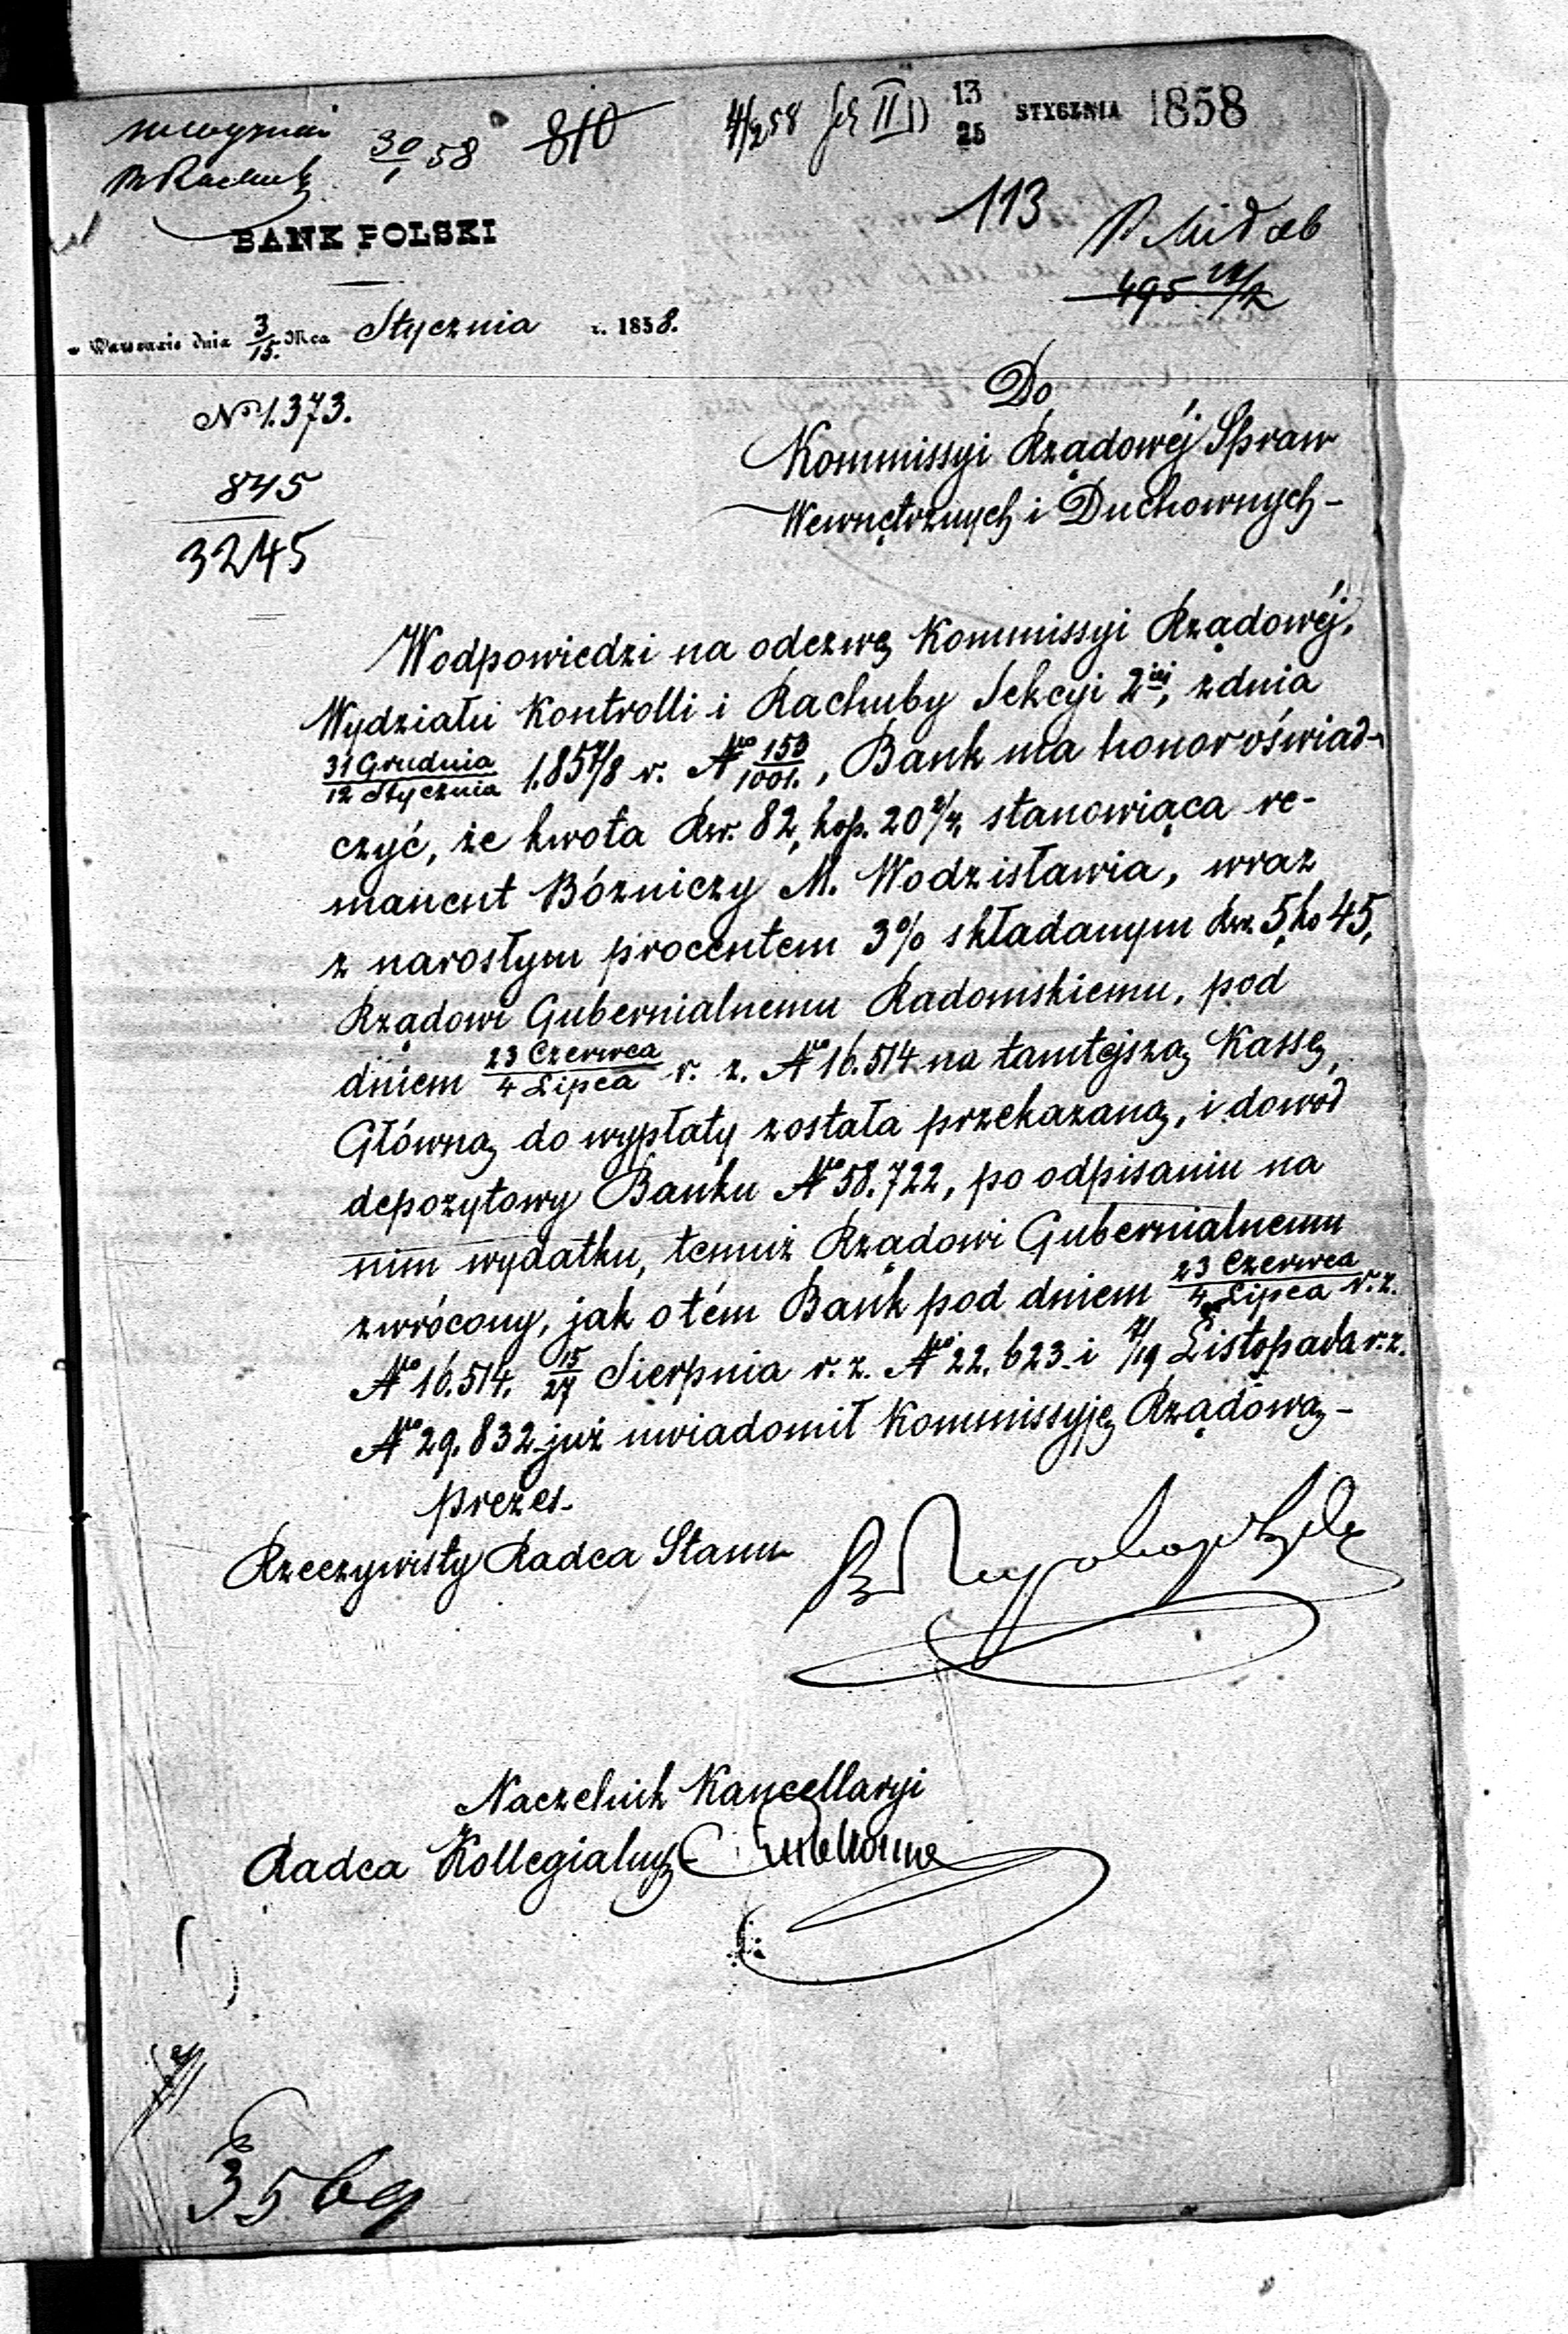 30/1 58 810 4/2 58 II 13/25 STYCZNIA 1858
113
BANK POLSKI
495
w Warszawie dnia 3/15. Mca Stycznia r. 1858.
Do
No 1.373.
Kommissyi Rządowéj Spraw
845
Wewnętrznych i Duchownych -
3245
W odpowiedzi na odezwę Kommissyi Rządowéj,
Wydziału Kontrolli i Rachuby Sekcyi 2iéj, z dnia
31 Grudnia/12 Stycznia 1.857/8 r. No 153/1001., Bank ma honor oświad-
czyć, że kwota Rsr. 82, kop. 20 2/4, stanowiąca re-
manent Bózniczy M. Wodzisławia, wraz
z narosłym procentem 3% składanym Rsr. 5, ko 45,
Rządowi Gubernialnemu Radomskiemu, pod
dniem 23 Czerwca/4 Lipca r. z. No 16.514 na tamtejszą Kassę
Główną do wypłaty została przekazaną, i dowód
depozytowy Banku No 58.722, po odpisaniu na
nim wydatku, temuż Rządowi Gubernialnemu
zwrócony, jak o tém Bank pod dniem 23 Czerwca/4 Lipca r. z.
No 16.514. 15/27 Sierpnia r. z. No 22.623. i 7/19 Listopada r. z.
No 29.832 już uwiadomił Kommissyję Rządową -
Prezes.
Rzeczywisty Radca Stanu
Naczelnik Kancellaryi
Radca Kollegialny
3569